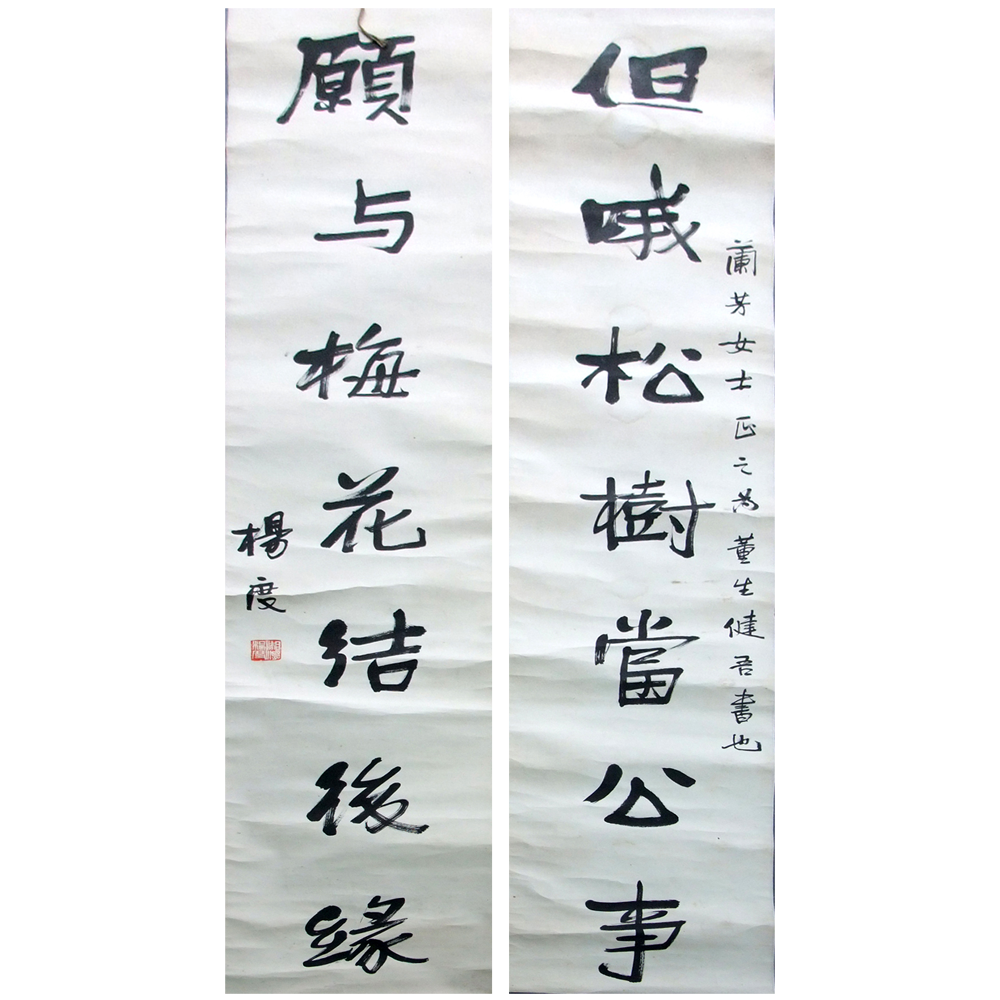 但哦松樹當公事
蘭芳女士正之為董生健吾書也
願与梅花結後緣
楊度